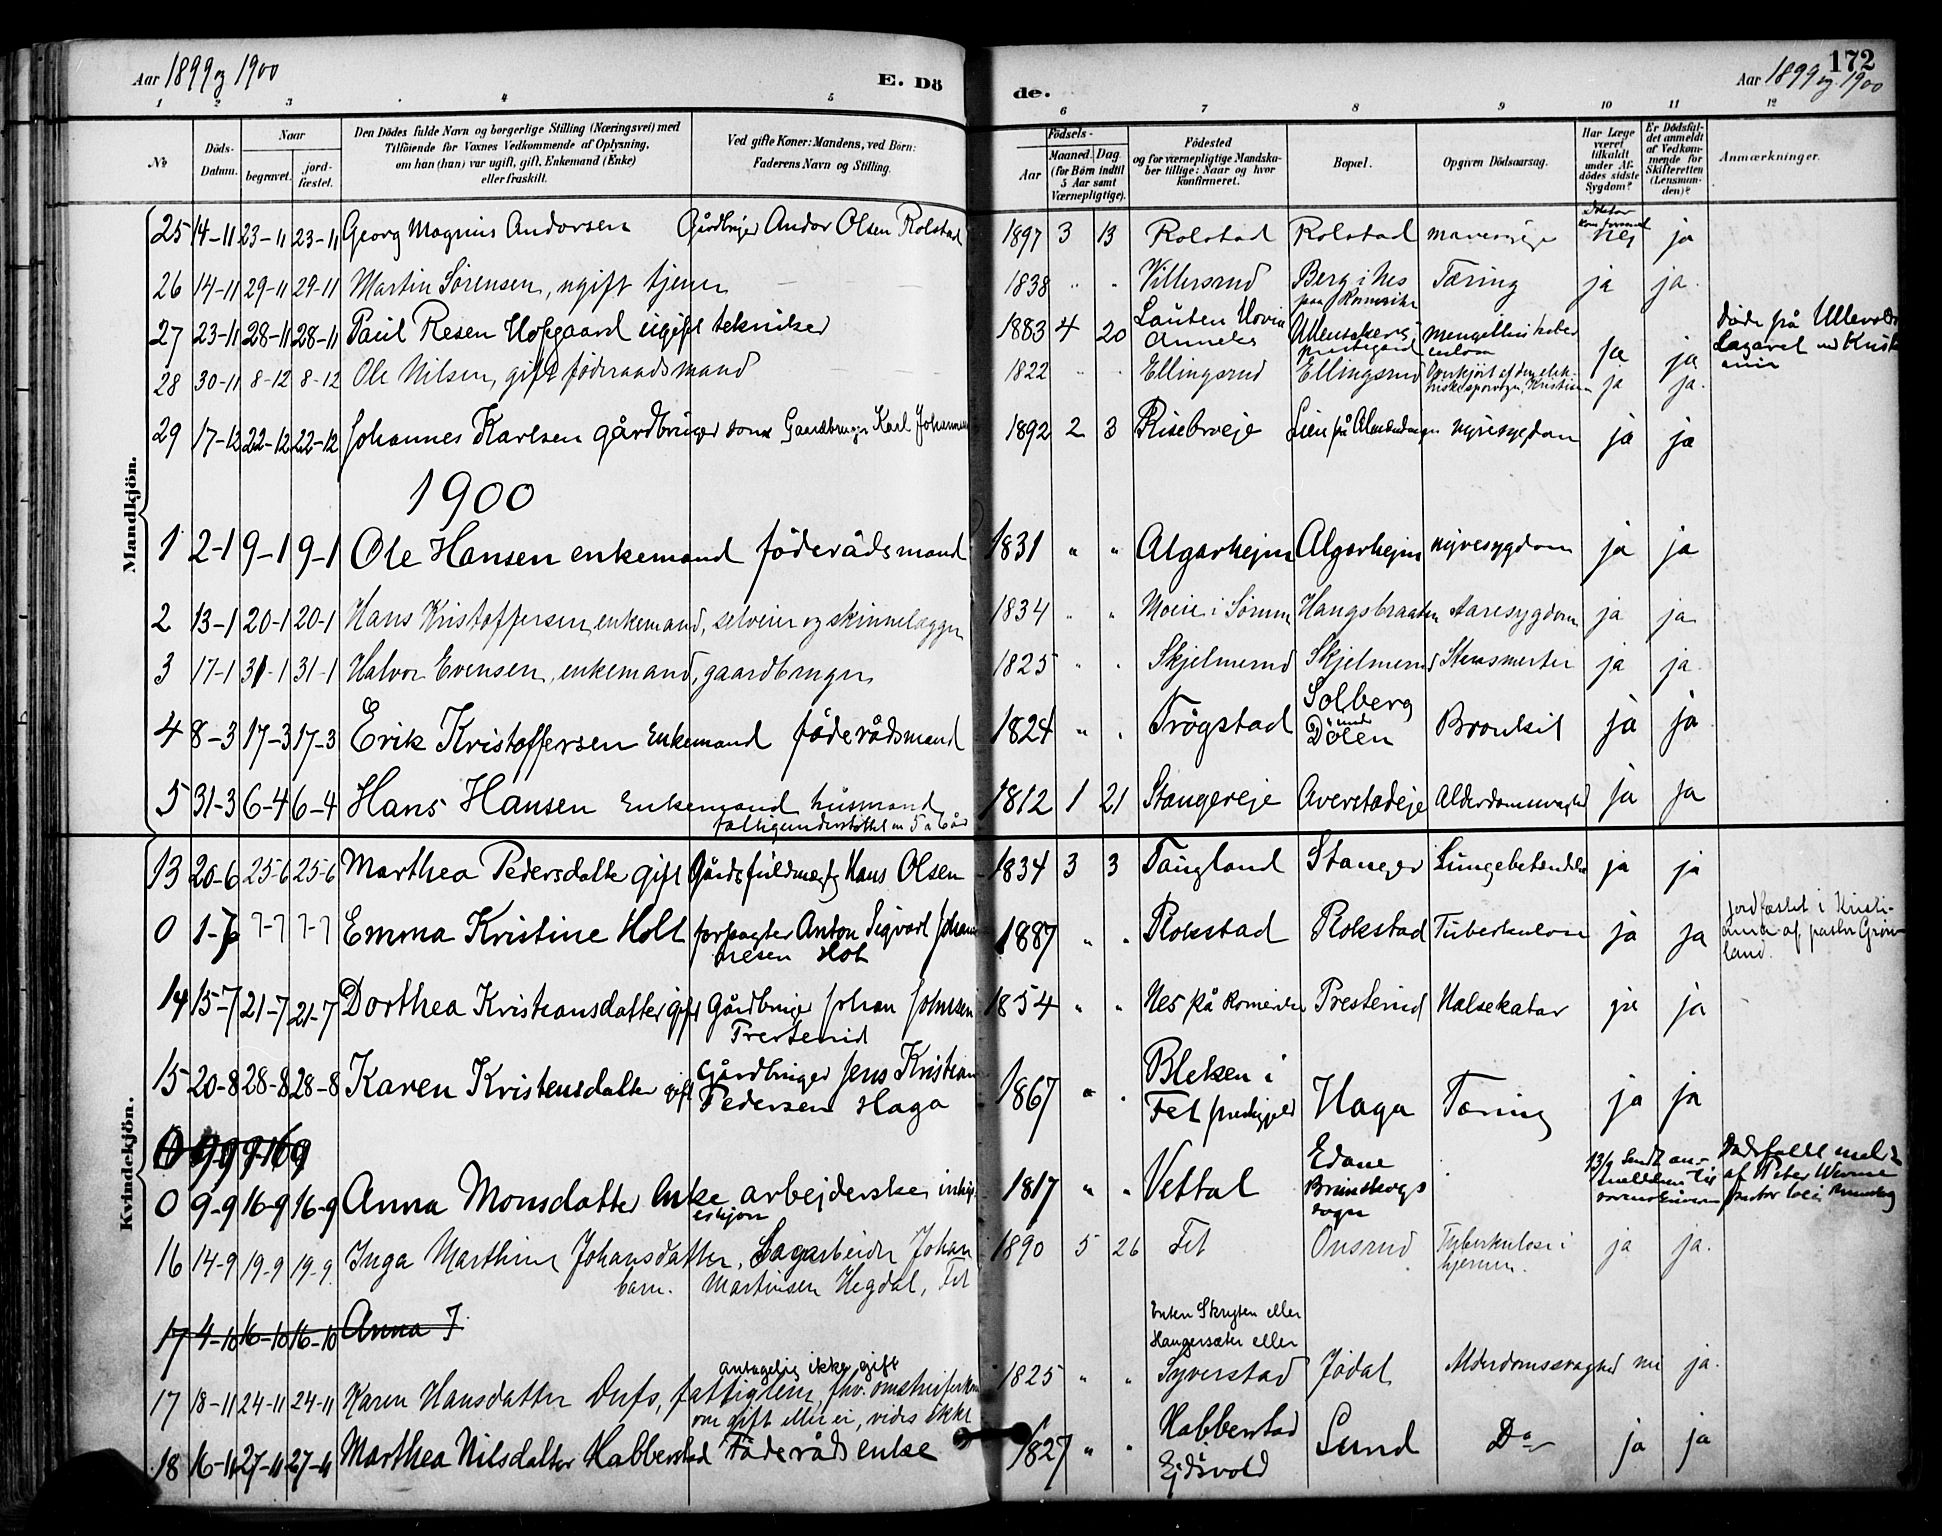 Aar 1899 og 1900
E. Dö
de.
172
Aar 1899 og 1900
1 2 3 4 5 6 7 8 9 10 11 12
No
Döds-Datum.
Naar
begravet.
jord-fæstet.
Den Dödes fulde Navn og borgerlige Stilling (Næringsvei) med
Tilföiende for Voxnes Vedkommende af Oplysning,
om han (hun) var ugift, gift, Enkemand (Enke)
eller fraskilt.
Ved gifte Koner: Mandens, ved Börn:
Faderens Navn og Stilling.
Födsels-
Aar
Maaned. Dag
(for Börn indtil
5 Aar samt
Værnepligtige).
Födested
og for værnepligtige Mandska-
ber tillige: Naar og hvor
konfirmeret.
Bopæl.
Opgiven Dödsaarsag.
Har Læge
været
tilkaldt
under Af-
dödes sidste
Sygdom?
Er Dödsfal-
det anmeldt
af Vedkom-
mende for
Skifteretten
(Lensman-
den)?
Anmærkninger.
Mandkjön.
25 14-11 23-11 23-11 Georg Magnus Andorsen Gårdbruger Andor Olsen Rolstad 1897 3 13 Rolstad Rolstad mavesyge nei ja
26 14-11 29-11 29-11 Martin Sörensen, ugift tjener 1838 " " Villersrud Berg i Nes paa Romerike Tæring ja ja.
27 23-11 28-11 28-11 Paul Resen Hofgaard ugift tekniker 1883 4 20 Hovin ja ja Döde på Ullevold Lazaret ved Kristi
28 30-11 8-12 8-12 Ole Nilsen, gift föderaadsmand 1822 " " Ellingsrud Ellingsrud Overkjört af den elektriske sporvogn, Kristiania ja ja.
29 17-12 22-12 22-12 Johannes Karlsen gårdbruger sön Gaardbruger Karl Johannesen 1892 2 3 Risebroeje Lien på Almenningen nyresygdom ja ja
1900
1 2-1 9-1 9-1 Ole Hansen enkemand föderådsmand 1831 " " Algarhejm Algarhejm nyresygdom ja ja
2 13-1 20-1 20-1 Hans Kristoffersen, enkemand, selveier og skinnelægger 1834 " " Moeie i Sörum Hangsbraaten Aaresygdom ja ja
3 17-1 31-1 31-1 Halvor Evensen, enkemand, gaardbruger 1825 " " Skjelmerud Skjelmerud Stensmerter ja ja.
4 8-3 17-3 17-3 Erik Kristoffersen Enkemand föderådsmand 1824 " " Trögstad Solberg under Dölen Bronkit ja ja
5 31-3 6-4 6-4 Hans Hansen Enkemand husmand fattigunderstöttet en 5 a 6 år 1812 1 21 Stangereje Averstadeje Alderdomssvaghed ja ja
Kvindekjön.
13 20-6 25-6 25-6 Marthea Pedersdatter gift Gårdsfuldmægtig Hans Olsen 1834 3 3 Taugland Stanger Lungebetendelse ja ja
0 1-7 7-7 7-7 Emma Kristine Holt forpagter Anton Sigvart Johannesen Holt 1887 " " Rokstad Rokstad Tuberkulose ja ja jordfæstet i Kristiania af pastor Grönland.
14 15-7 21-7 21-7 Dorthea Kristiansdatter gift Gårdbruger Johan Johnsen Presterud 1854 " " Nes på Romerike Presterud Halsekatar ja ja
15 20-8 28-8 28-8 Karen Kristensdatter gift Gårdbruger Jens Kristian Pedersen Haga 1867 " " Bleken i Fet prestegjeld Haga Tæring ja ja
0 9-9 16-9
0 9-9 16-9 16-9 Anna Monsdatter Enke arbejderske 1817 " " Vettal Edane Brunskogs sogn 13/9 Sendt anmeldelse til Dödsfaldet meldt af Peter
16 14-9 19-9 19-9 Inga Marthine Johansdatter, barn. Sagarbeider Johan Martinsen Hegdal, Fet 1890 5 26 Fet Onsrud Tyberkulose i hjernen. ja ja.
17 4-10 16-10 16-10 Anna J
17 18-11 24-11 24-11 Karen Hansdatter Dufs, fattiglem, fhv. omstreiferske antagelig ikke gift om gift eller ei, vides ikke 1825 " " Enten Skrysten eller Haugersæter eller Syverstad Jödal Alderdomssvaghed nei ja.
18 16-11 27-11 27-11 Marthea Nilsdatter Habberstad Föderådsenke 1827 " " Habberstad i Ejdsvold Lund Do ja ja